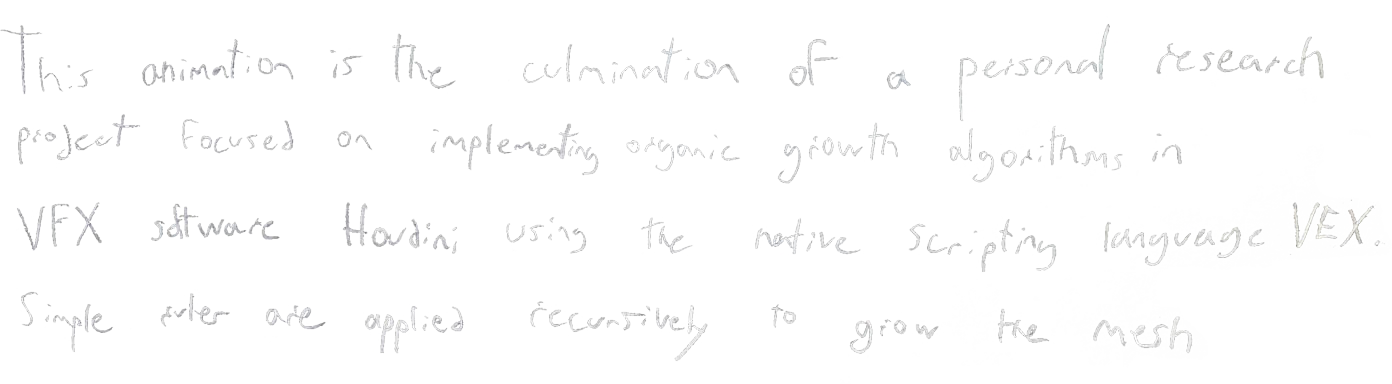 This animation is the culmination of a personal research
project focused on implementing organic growth algorithms in
VFX software Houdini using the native scripting language VEX.
Simple rules are applied recursively to grow the mesh